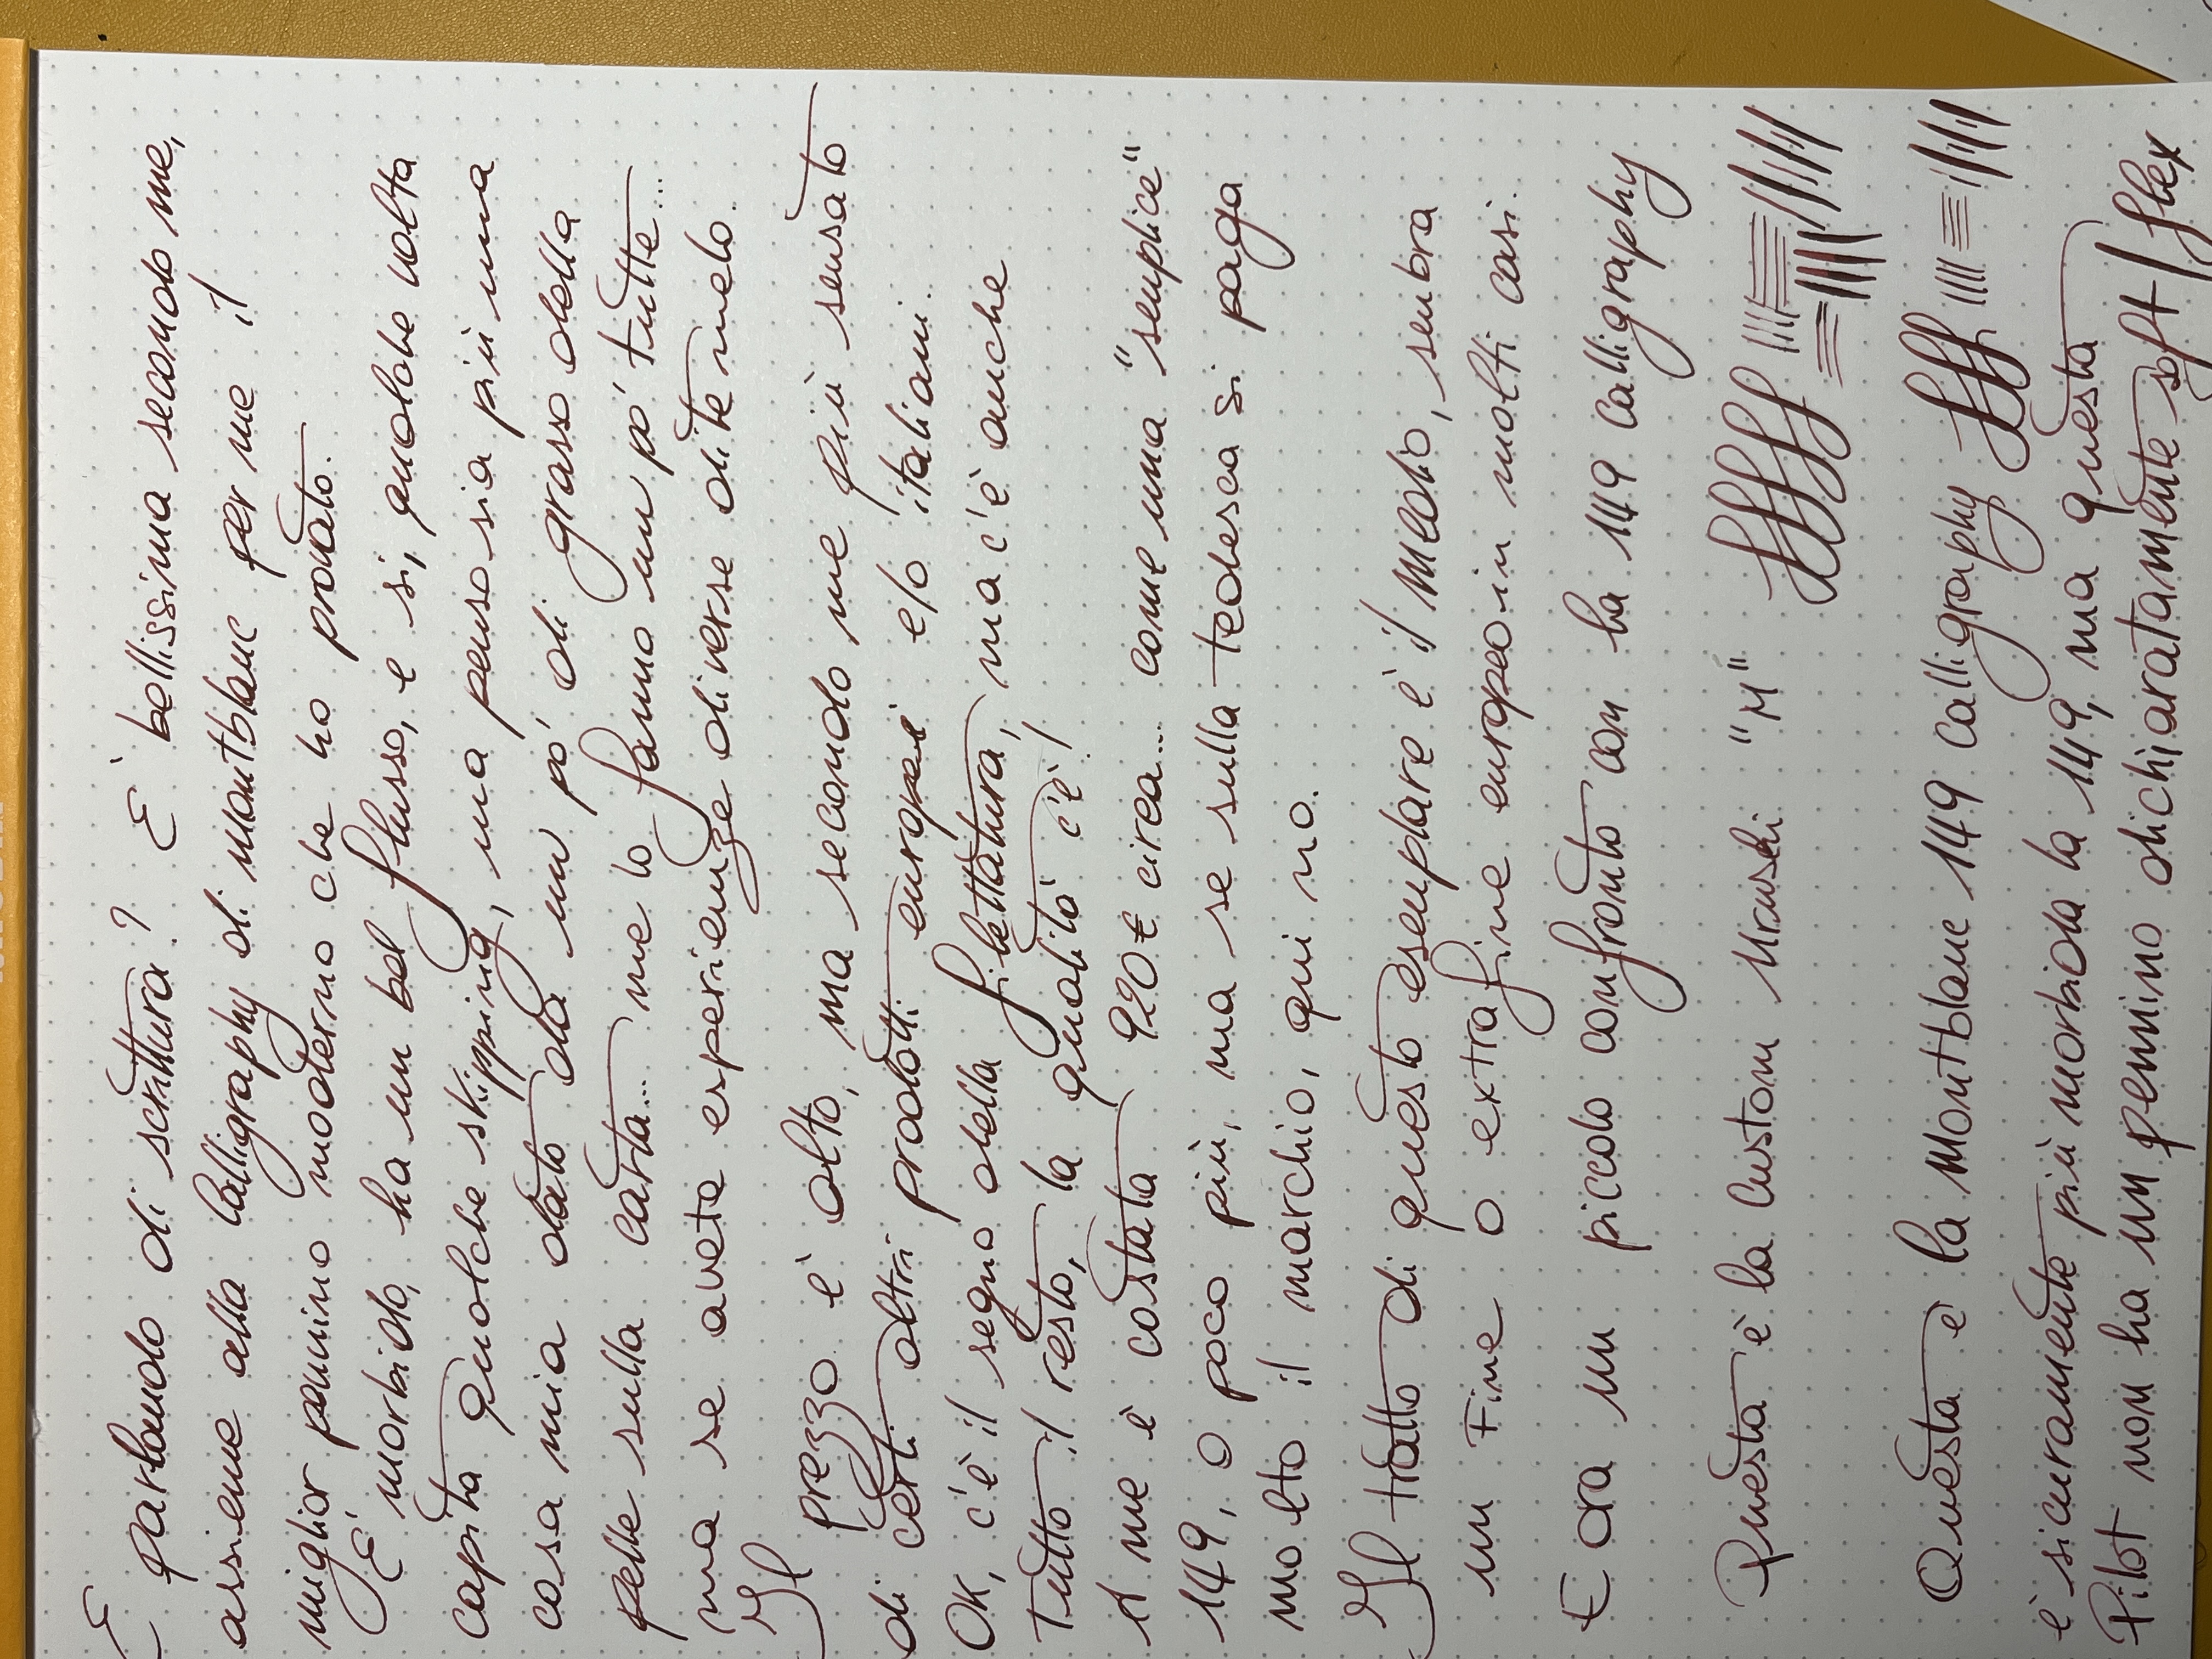 E parlando di scrittura? È bellissima secondo me,
assieme alla Calligraphy di montblanc per me il
miglior pennino moderno che ho provato.
È morbido, ha un bel flusso, e si, qualche volta
capita qualche skipping, ma penso sia più una
cosa mia dato da un po' di grasso della
pelle sulla carta... me lo fanno un po' tutte...
ma se avete esperienze diverse ditemelo.
Il prezzo è alto, ma secondo me più sensato
di certi altri prodotti europei e/o italiani.
OK, c'è il segno della filettatura, ma c'è anche
Tutto il resto, la qualità c'è!
A me è costata 920€ circa... come una "semplice"
149, o poco più, ma se sulla tedesca si paga
molto il marchio, qui no.
Il tratto di questo esemplare è il Medio, sembra
un Fine o extrafine europeo in molti casi.
E ora un piccolo confronto con la 149 Calligraphy
Questa è la Custom Urushi "M"
Questa è la Montblanc 149 Calligraphy
è sicuramente più morbida la 149, ma questa
Pilot non ha un pennino dichiaratamente soft/flex